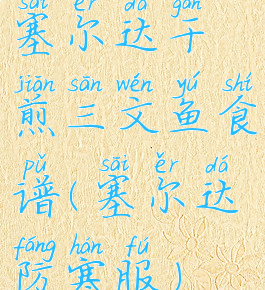 sāi ěr dá gān
塞尔达干
jiān sān wén yú shí
煎三文鱼食
pǔ sāi ěr dá
谱(塞尔达
fáng hán fú
防寒服)